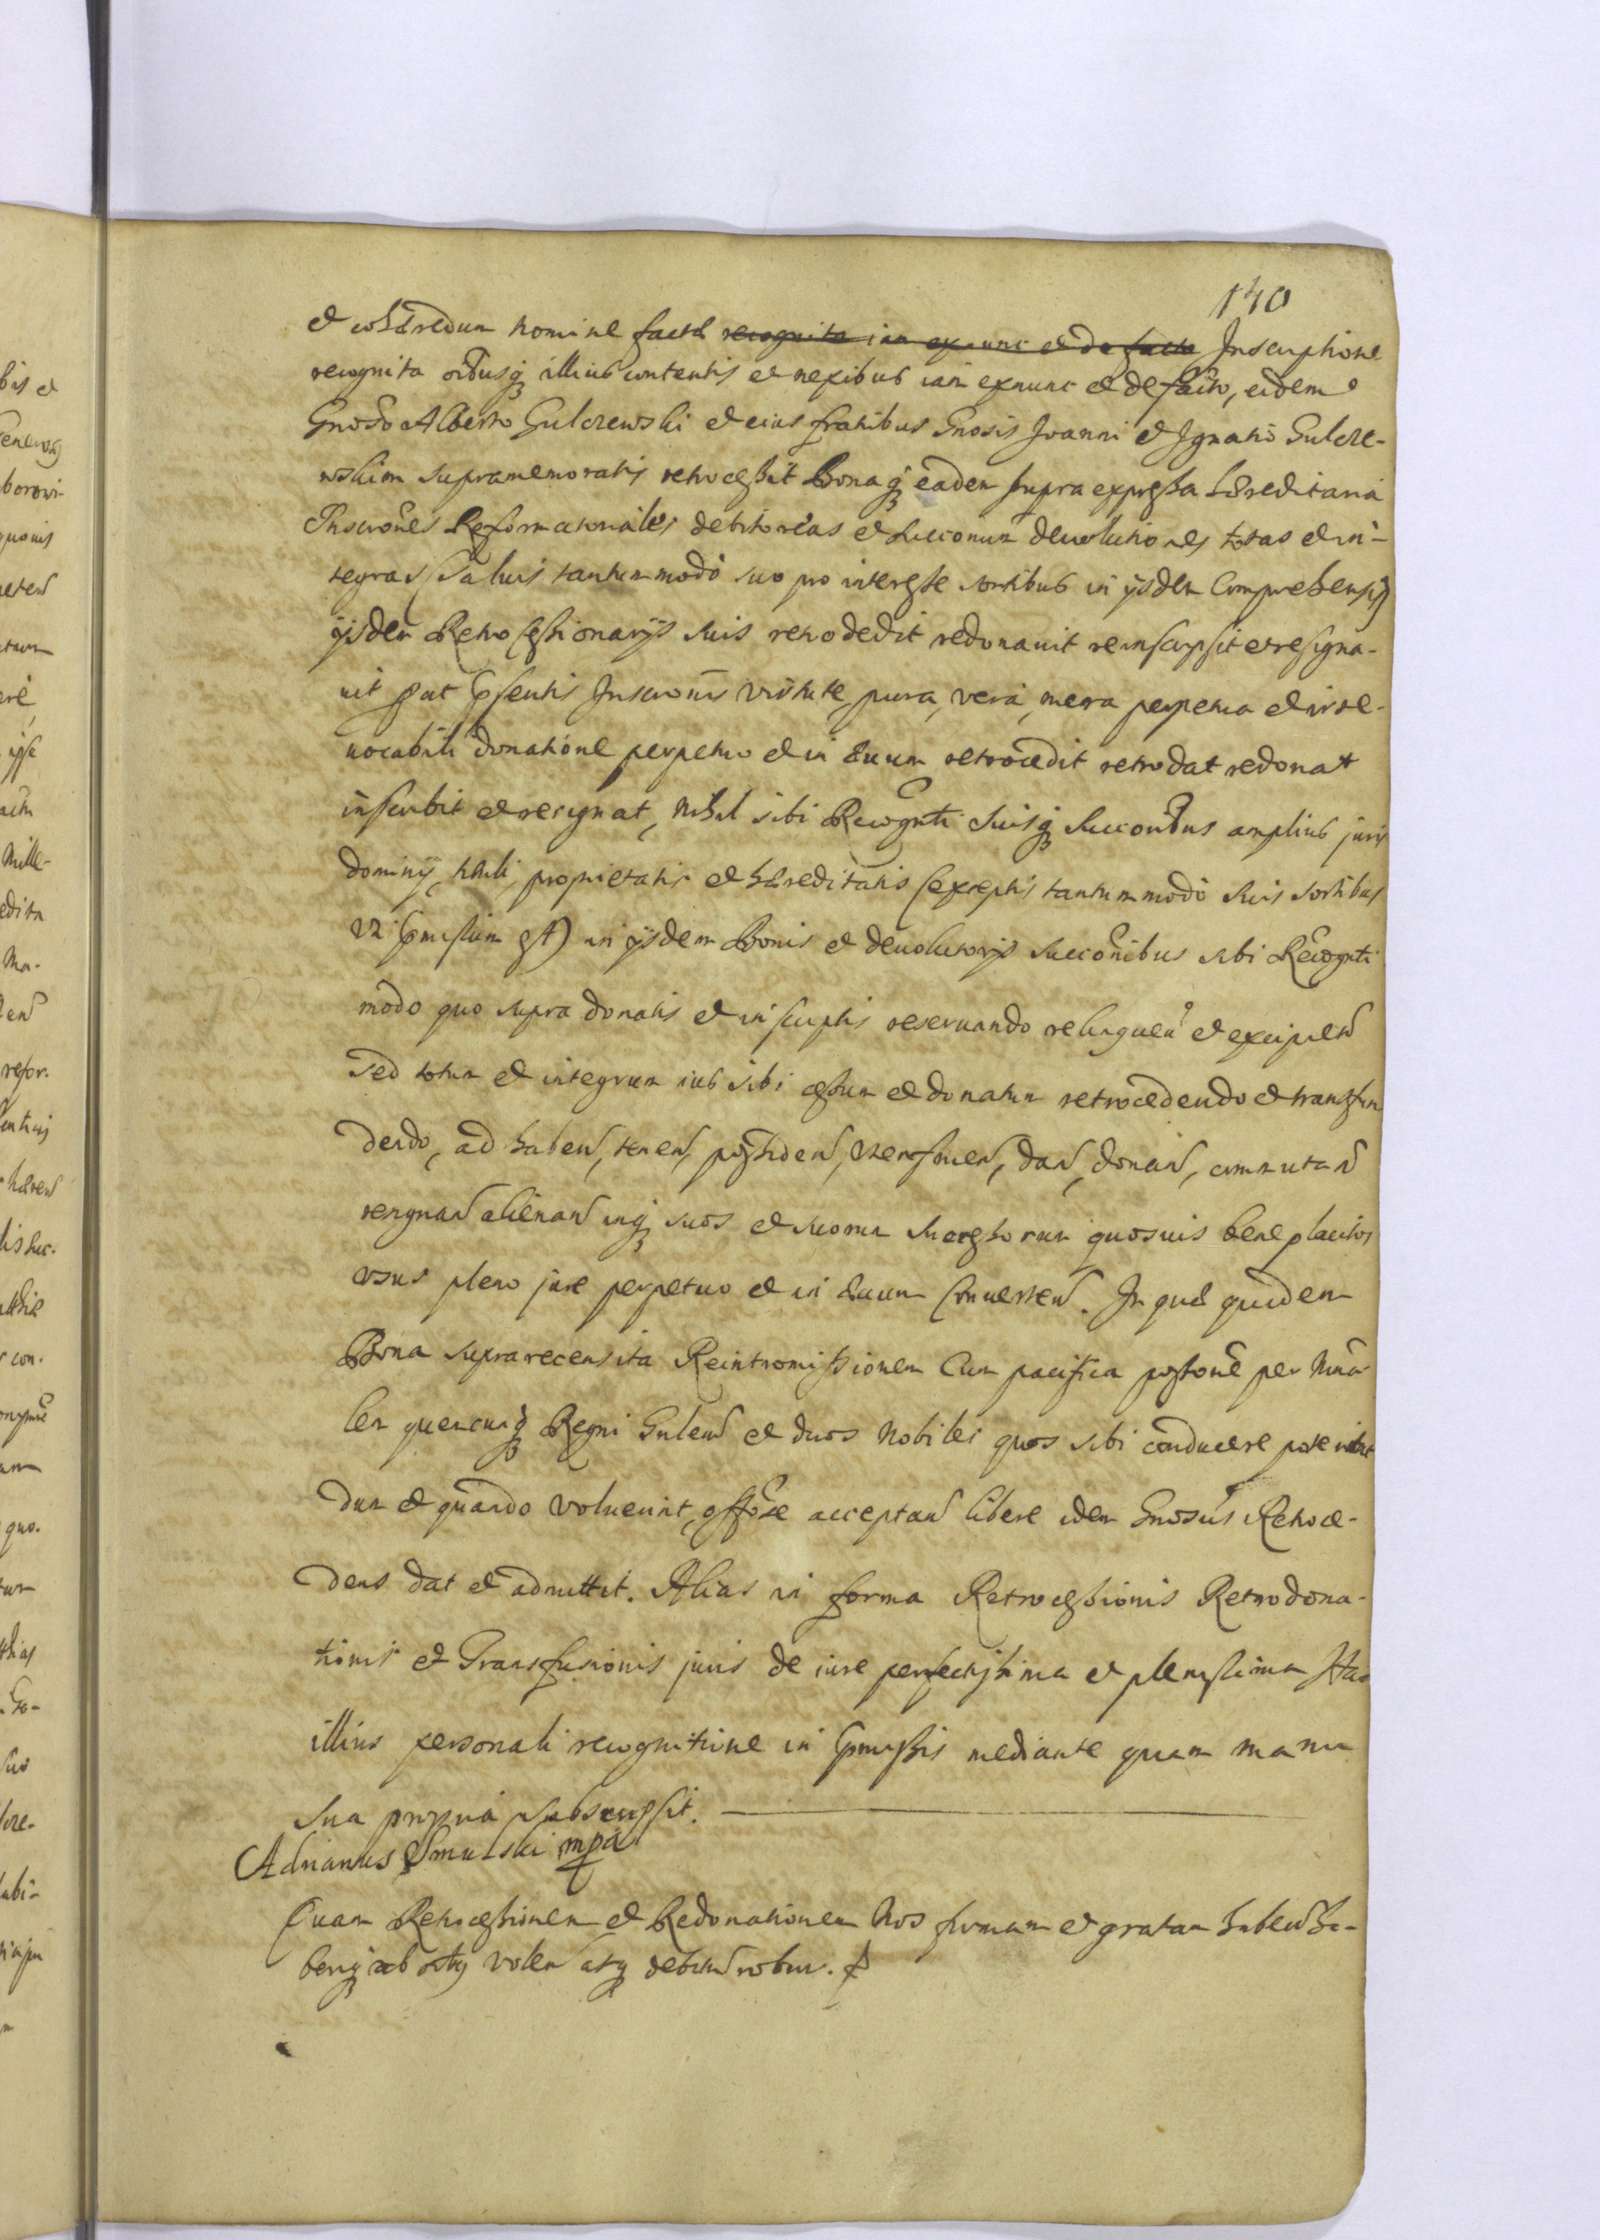 140
et cohæredum nomine factæ recognita iam exnunc et de facto Inscriptione
recognita oībusq illius contentis et nexibus iam exnunc et de facto, eidem
Gnoso Alberto Gulczewski et eius fratribus Gnosis Joanni et Ignatio Gulcze-
wskiom supramemoratis retrocessit Bonaq eadem supra expressa hæreditaria
Inscrones Reformatoriales debitorias et succonum devolutiones totas et in-
tegras salvis tantummodo suo pro interesse sortibus in ijsdem comprehensis
ijsdem Retrocessionarijs suis retrodedit redonavit reinscripsit et resigna-
vit put psentis Inscronis virtute pura, vera, mera perpetua et irre-
vocabili donatione perpetuo et in ævum retrocedit retrodat redonat
inscribit et resignat, nihil sibi Recognti suisq succoribus amplius juris
dominij, tituli, proprietatis et hæreditatis (exceptis tantummodo suis sortibus
vt pmissum est) in ijsdem Bonis et devolutorijs succonibus sibi Recognti
modo quo supra donatis et inscriptis reservando relinquen et excipien
sed totum et integrum ius sibi cessum et donatum retrocedendo et transfun
dendo, ad haben, tenen, possiden, vtenfruen, dan, donan, commutan
resignan alienan inq suos et suorum successorum quosvis beneplacitos
vsus pleno jure perpetuo et in ævum converten. In quæ quidem
Bona suprarecensita Reintromissionem cum pacifica possone per Mina
lem quemcunq Regni Gnlem et duos Nobiles quos sibi conducere
dum et quando voluerint, offose acceptan libere idem Gnosus Retroce-
dens dat et admittit. Alias in forma Retrocessionis Retrodona-
tionis et Transfusionis juris de iure perfectissima et plenissima Hac
illius personali recognitione in pmissis mediante quam manu
sua propria subscripsit.
Adrianus Smulski mpa
Quam Retrocessionem et Redonationem Nos firmam et gratam haben ha-
beriq ab oibus volen atq debitum robur.